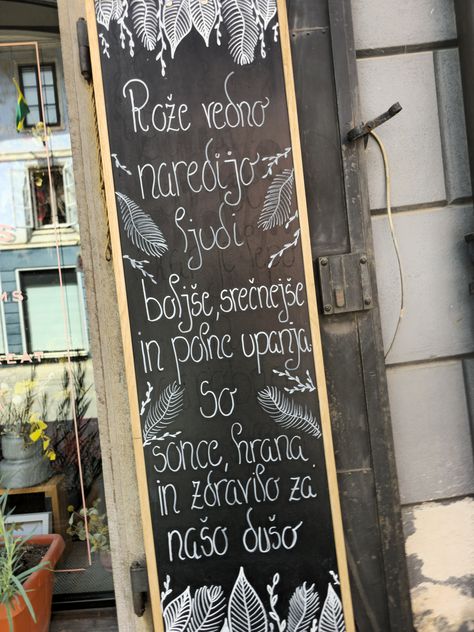 Rože vedno
naredijo
ljudi
boljše, srečnejše
in polne upanja
so
sonce, hrana
in zdravilo za
našo dušo